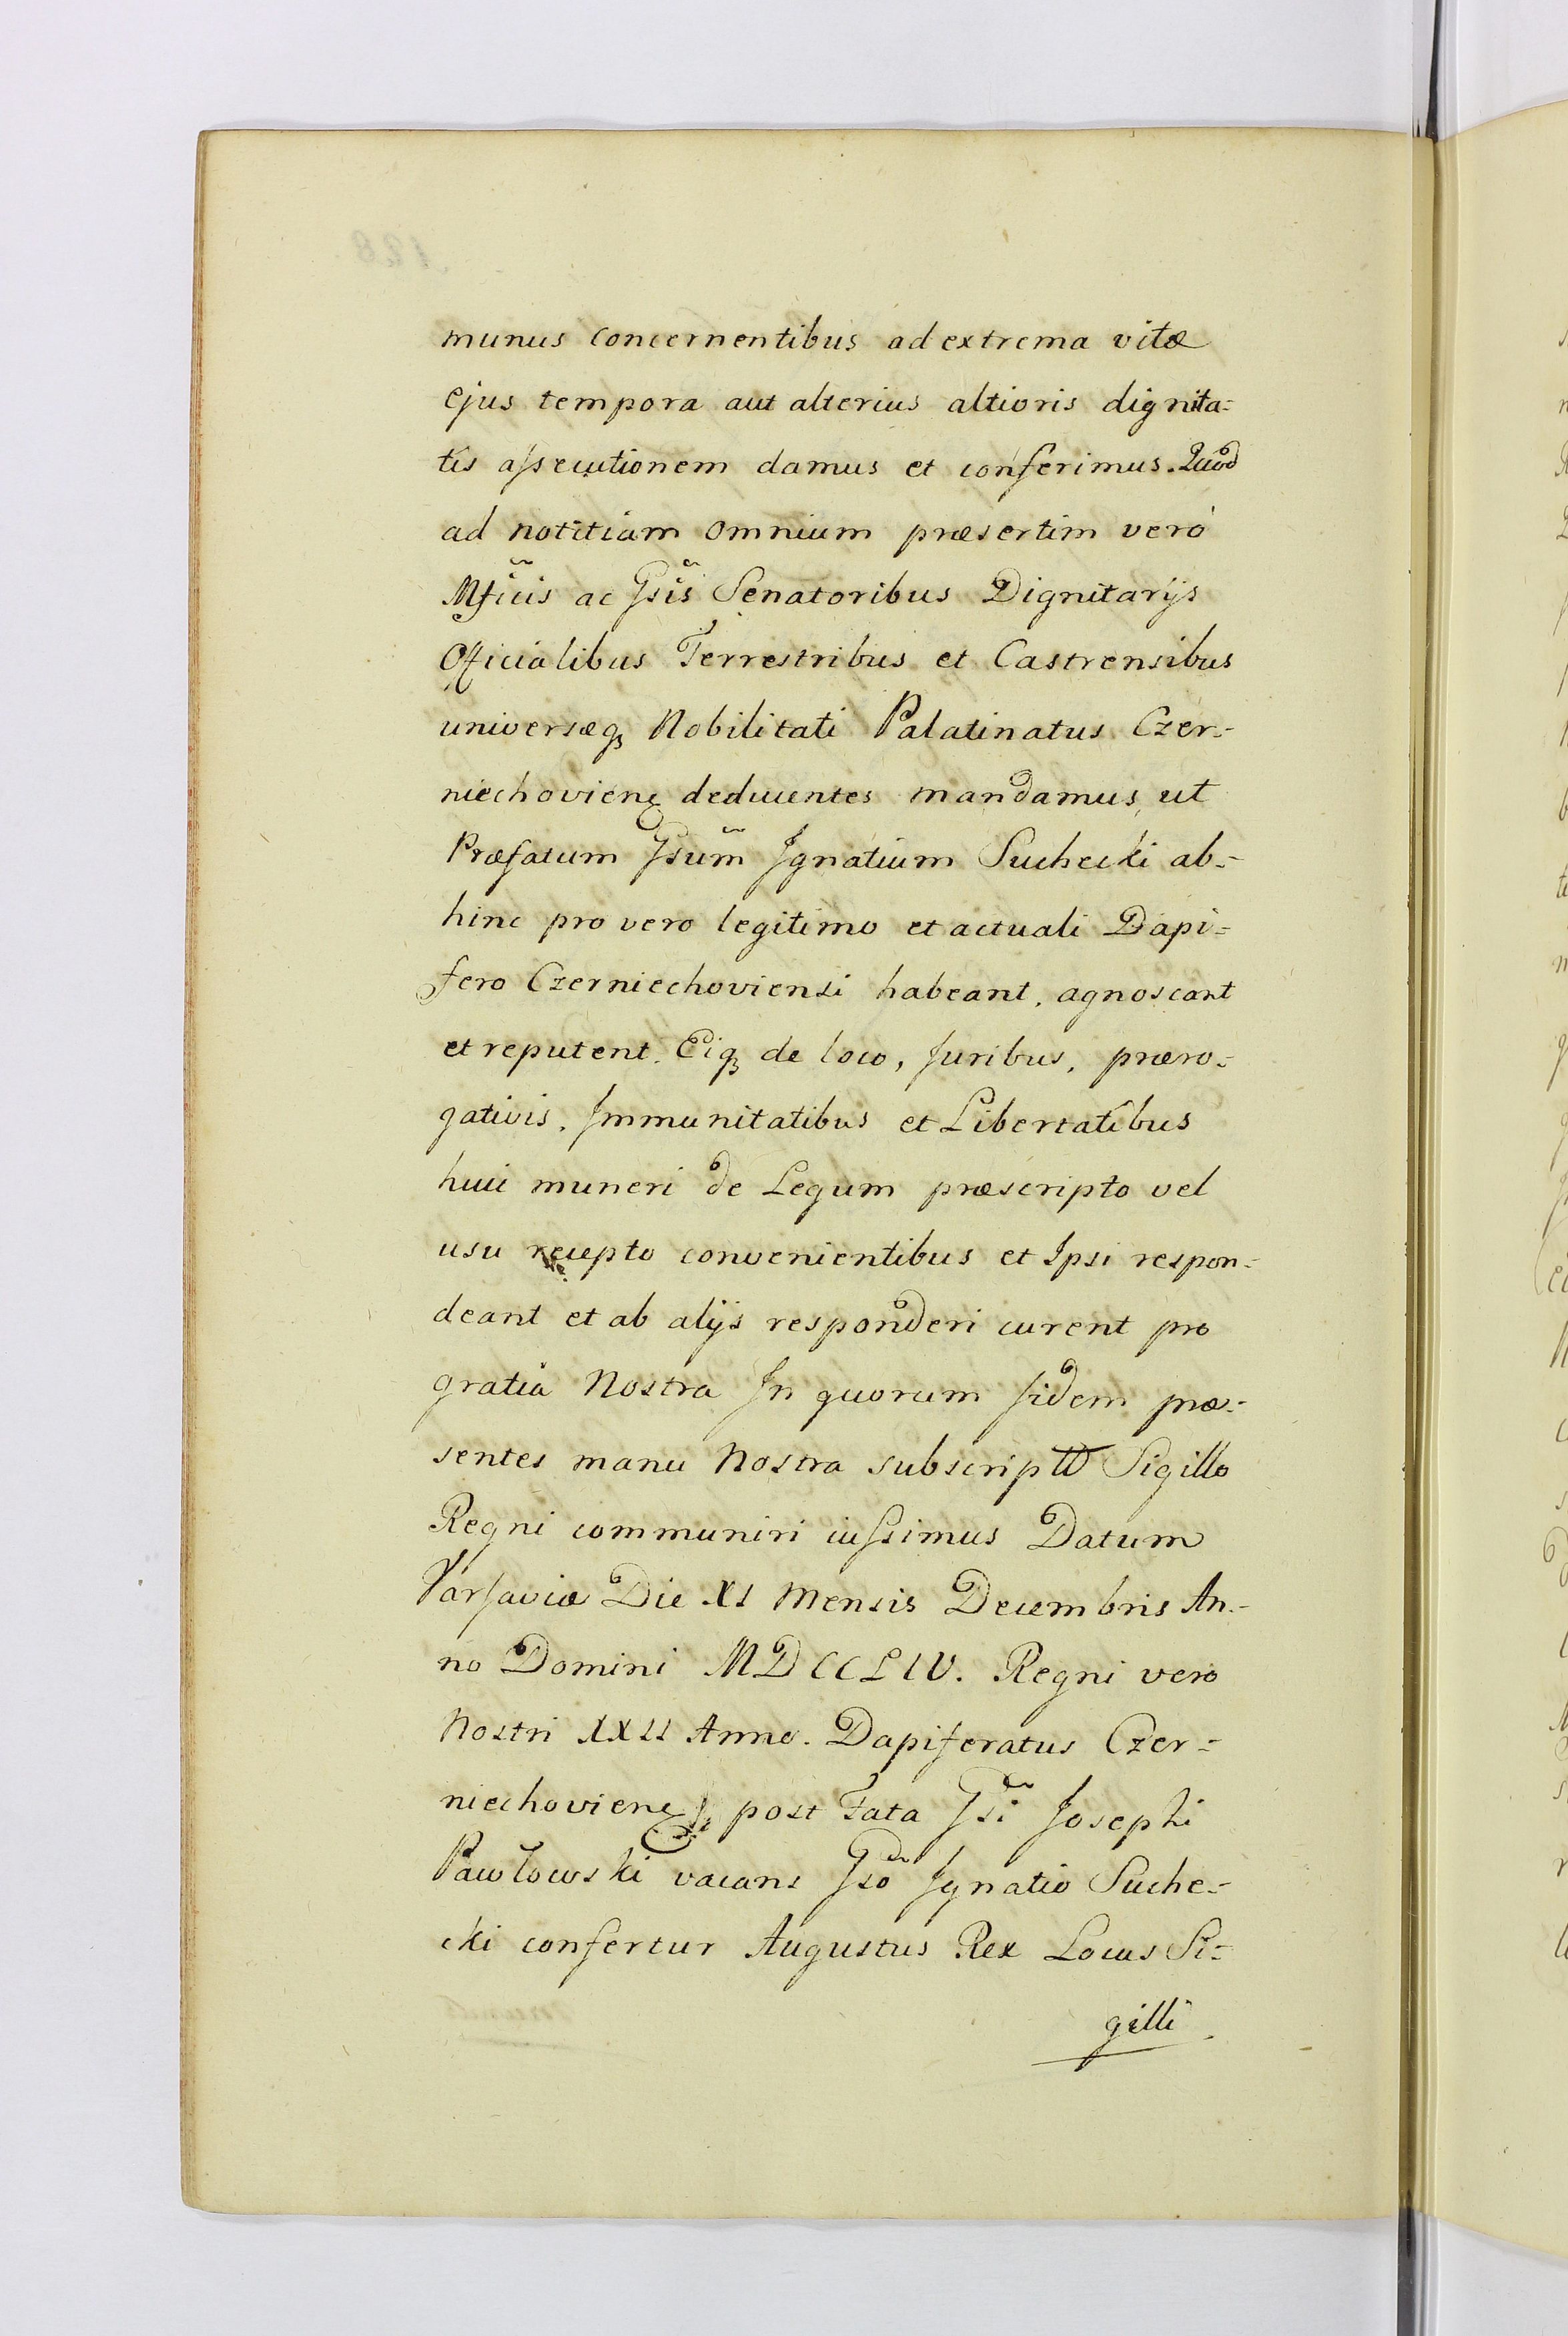 munus concernentibus ad extrema vitæ
ejus tempora aut alterius altioris dignita=
tis assecutionem damus et conferimus. Quod
ad notitiam omnium præsertim vero
Mficis ac Gsis Senatoribus Dignitarijs
Officialibus Terrestribus et Castrensibus
universæq₃ Nobilitati Palatinatus Czer=
niechovien deducentes mandamus, ut
Præfatum Gsum Ignatium Suchecki ab=
hinc pro vero legitimo et actuali Dapi=
fero Czerniechoviensi habeant, agnoscant
et reputent. Eiq₃ de loco, Juribus, præro=
gativis, Immunitatibus et Libertatibus
huic muneri de Legum præscripto vel
usu recepto convenientibus et Ipsi respon=
deant et ab alijs responderi curent pro
gratia Nostra In quorum fidem præ=
sentes manu Nostra subscriptt Sigillo
Regni communiri iussimus Datum
Varsaviæ Die XI Mensis Decembris An=
no Domini MDCCLIV. Regni vero
Nostri XXII Anno. Dapiferatus Czer=
niechovien post Fata Gsi Josephi
Pawłowski vacans Gso Ignatio Suche=
cki confertur Augustus Rex Locus Si=
gilli